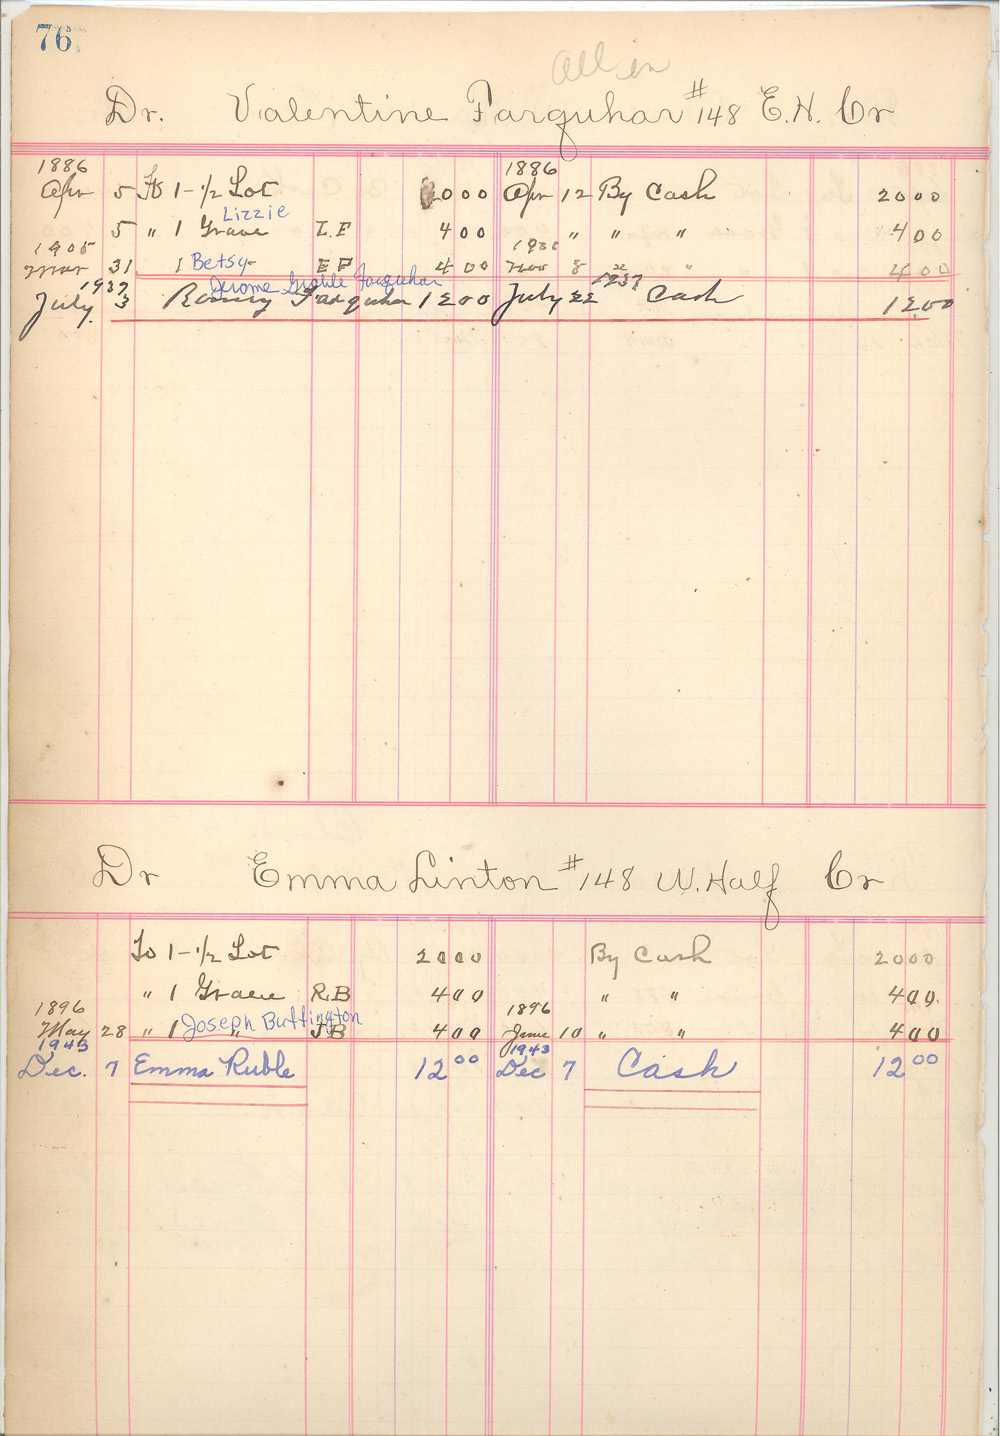 76
All in
Dr. Valentine Farquhar #148 E.H. Cr
1886 1886
Apr 5 To 1-1/2 Lot 2000 Apr 12 By Cash 2000
Lizzie
5 " 1 Grave L.F 400 " " " 400
1905
Mar 31 1 Betsy E F 400 Nov 8 " " 400
1937 Jerome Farquhar 1937
July 3 Farquhar 1200 July 22 Cash 1200
Dr Emma Linton #148 W. Half Cr
To 1-1/2 Lot 2000 By Cash 2000
" 1 Grave R.B 400 " " 400
1896 Joseph Buffington 1896
May 28 " 1 " J B 400 June 10 " " 400
1943 1943
Dec. 7 Emma Ruble 12 00 Dec 7 Cash 12 00